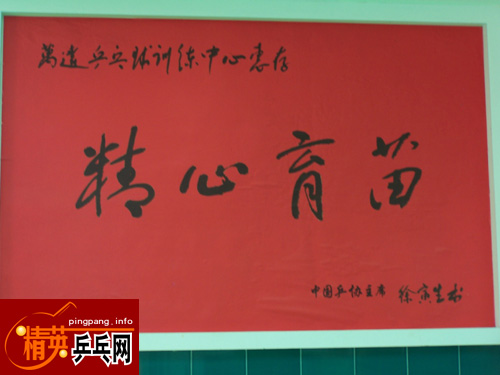 萬達乒乓球训练中心惠存
精心育苗
中国乒协主席 徐寅生书
pingpang.info
精英乒乓网